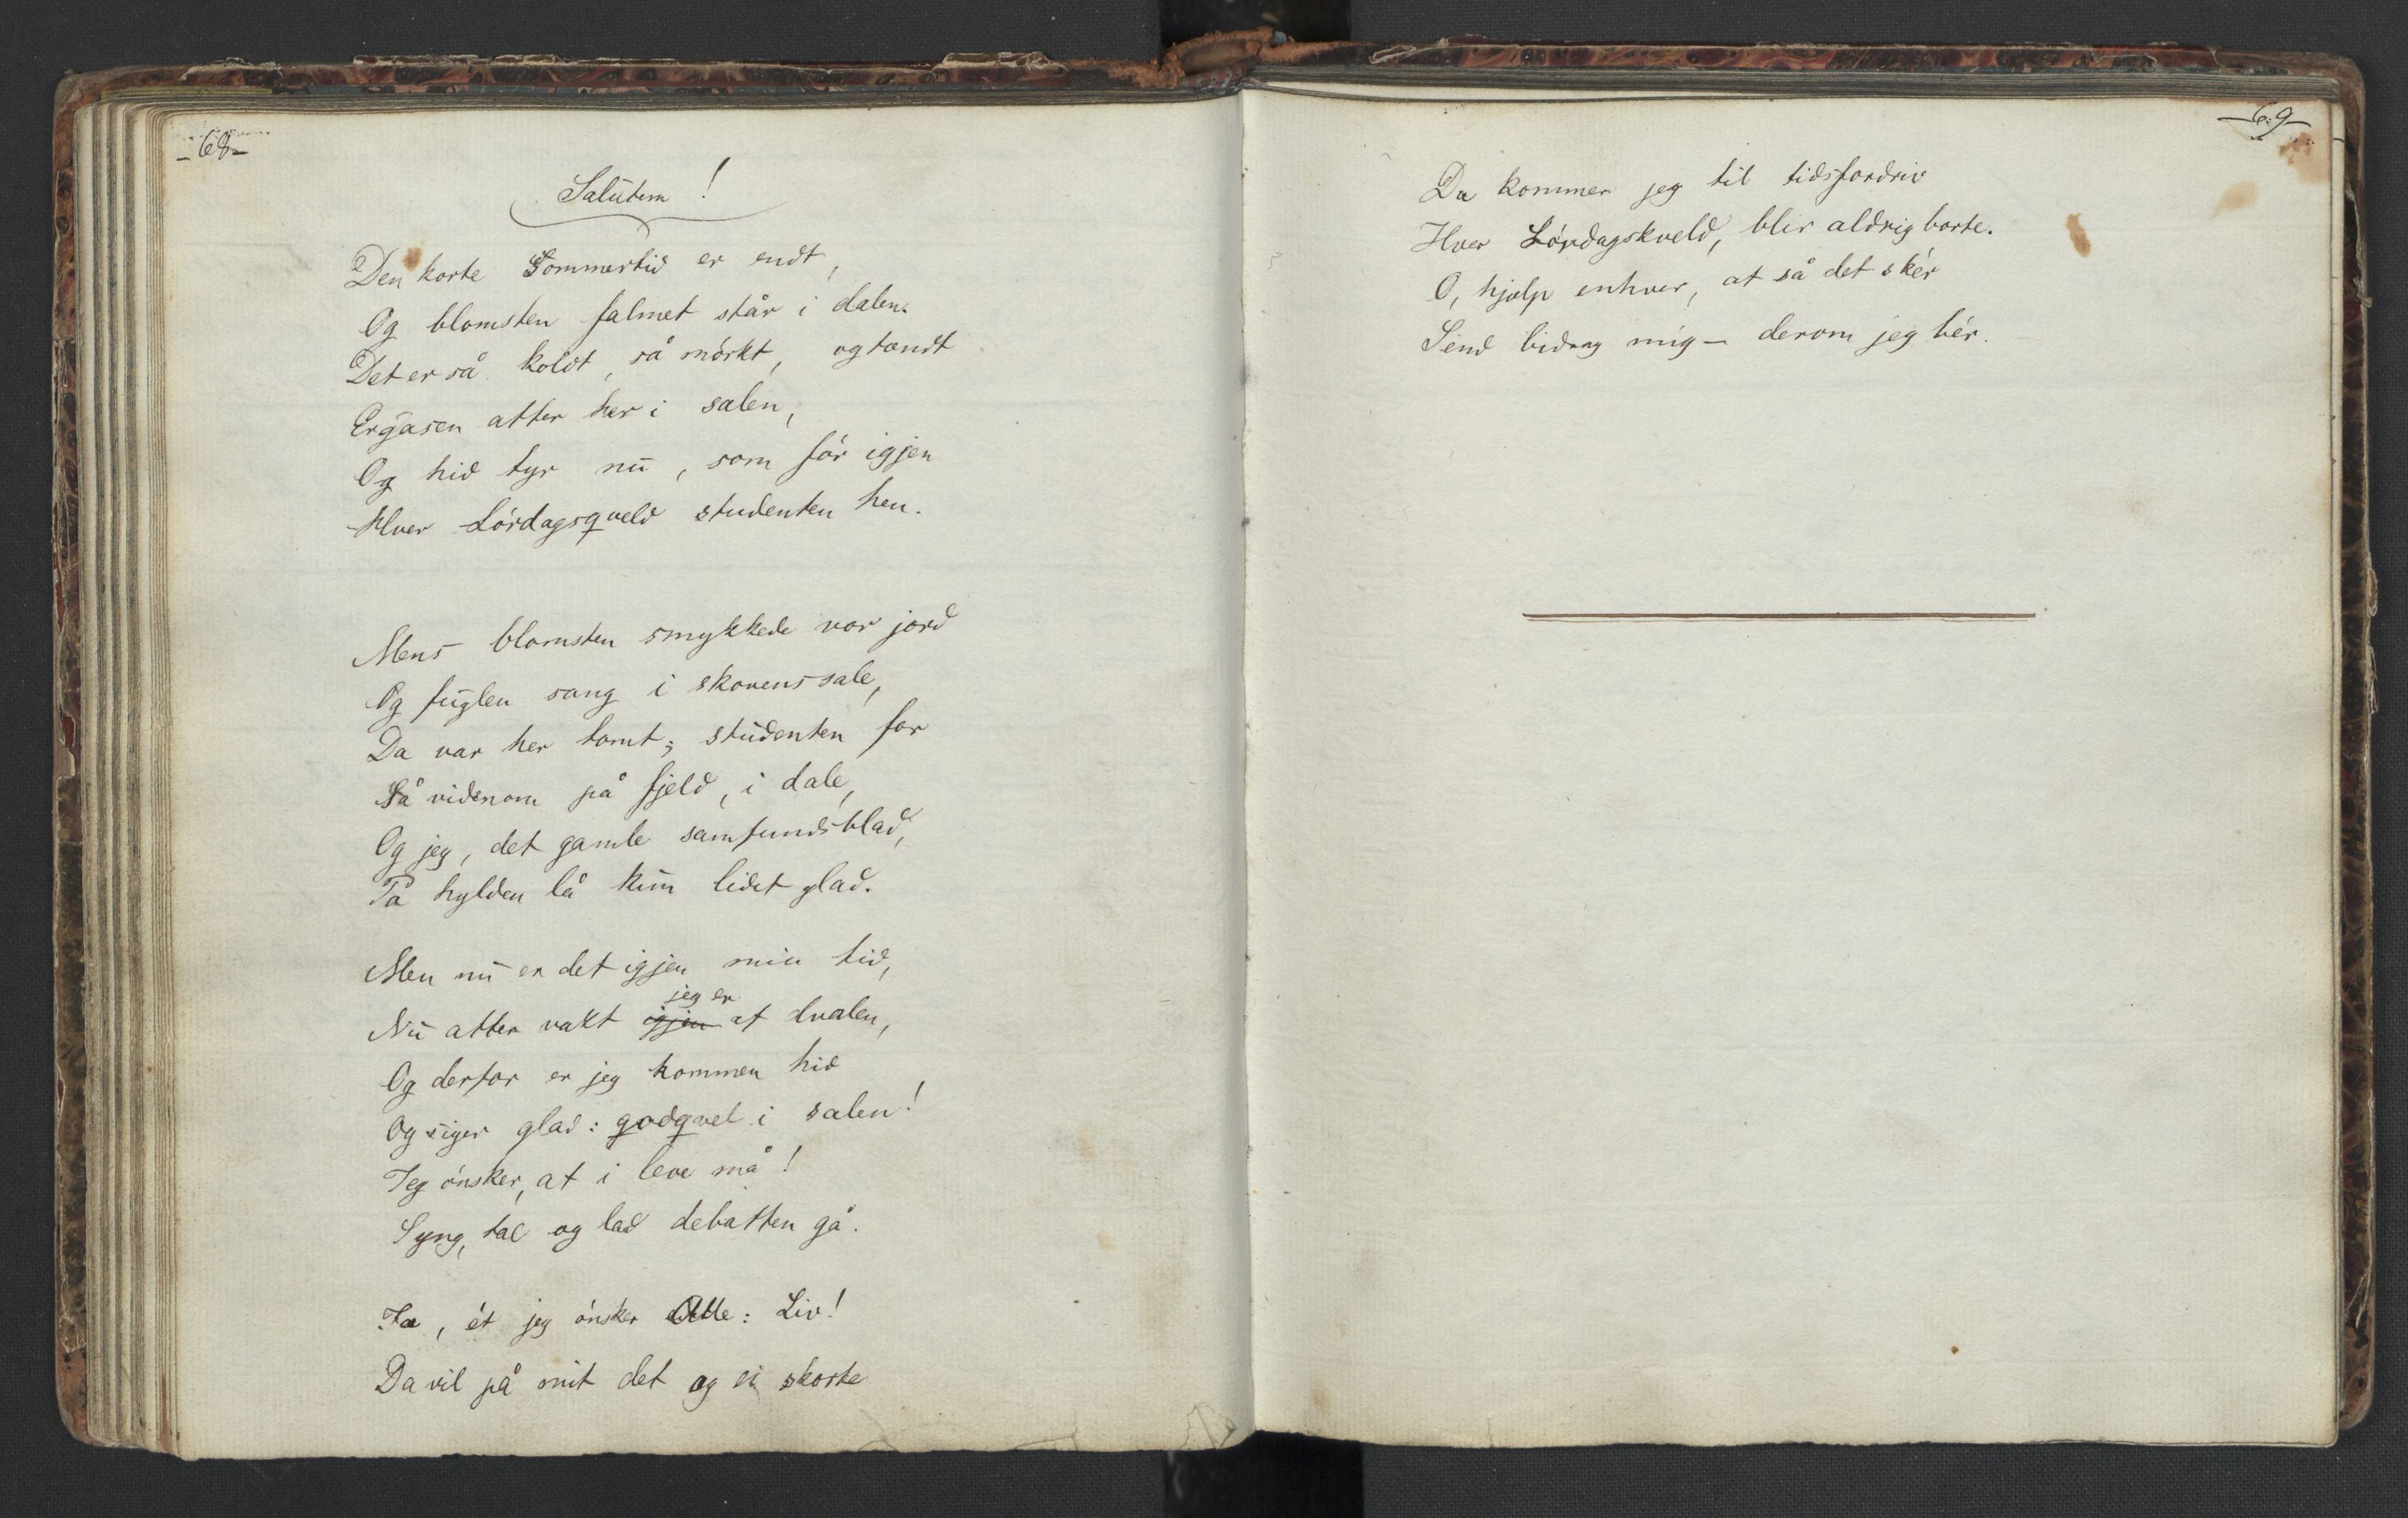 -68-
Salutem!
Den korte Sommertid er endt,
Og blomsten falmet står i dalen.
Det er så koldt, så mórkt, og tændt
Er gasen atter her i salen,
Og hid tyr nu, som fór igjen
Hver Lórdagsqveld studenten hen.
Mens blomsten smykkede vor jord
Og fuglen sang i skovens sale,
Da var her tomt; studenten for
Så videnom på fjeld, i dale,
Og jeg, det gamle samfundsblad,
På hylden lå kun lidet glad.
Men nu er det igjen min tid,
jeg er
Nu atter vakt igjen af dvalen,
Og derfor er jeg kommen hid
Og siger glad: godqvel i salen!
Jeg ónsker, at i leve må!
Syng, tal og lad debatten gå.
Ja, ét jeg ónsker Alle: Liv!
Da vil på mit det og ei skorte
-69-
Da kommer jeg til tidsfordriv
Hver Lórdagskveld, blir aldrig borte.
O, hjælp enhver, at så det skér
Send bidrag mig — derom jeg bér.